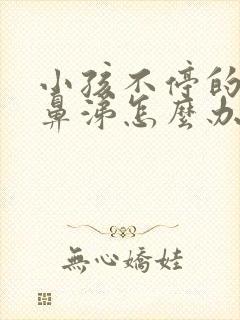 小孩不停的
鼻涕怎麼办
無心嬌娃